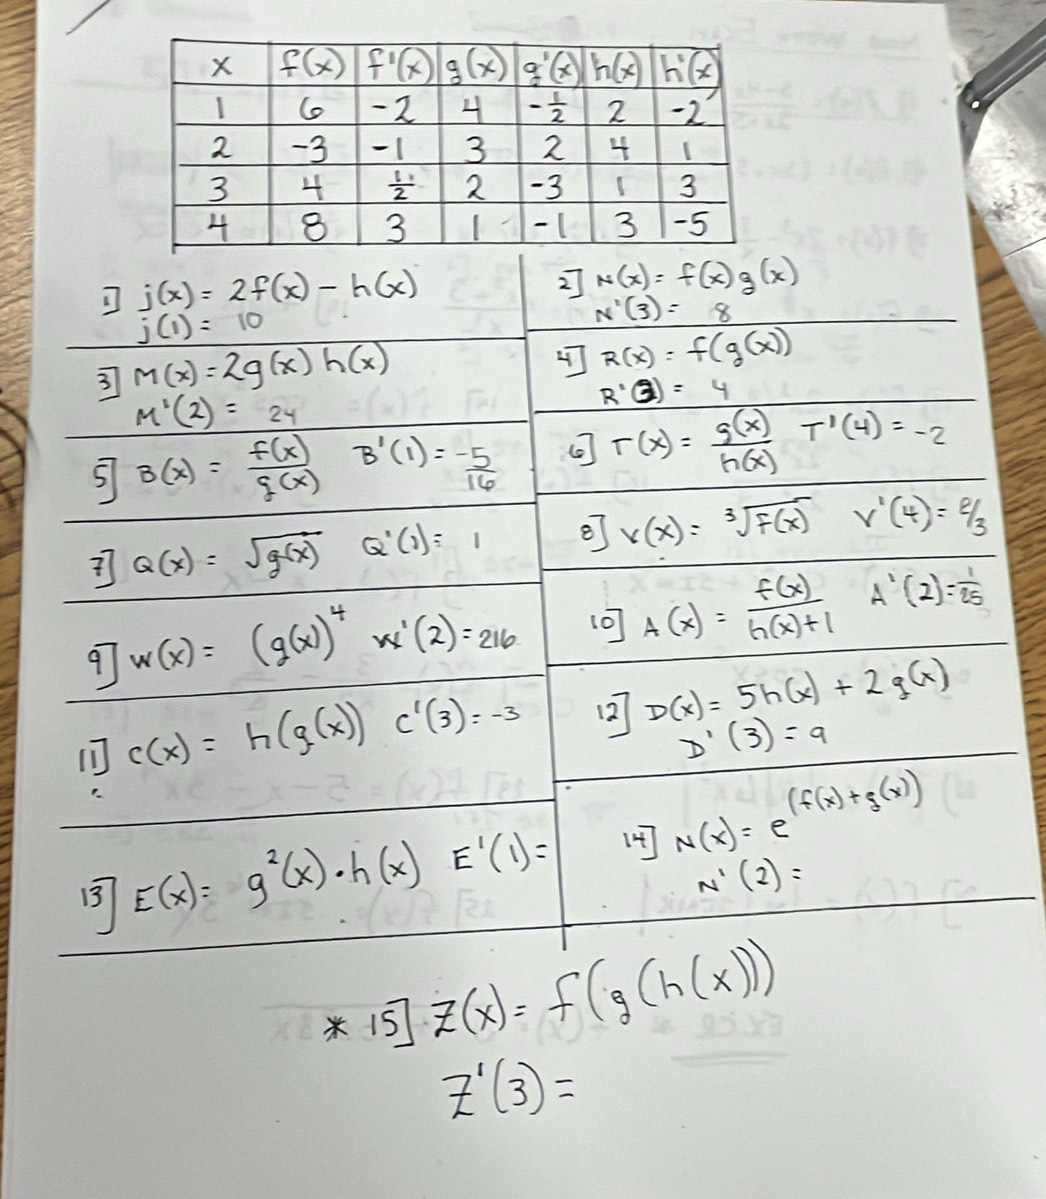 x f(x) f'(x) g(x) g'(x) h(x) h'(x)
1 6 -2 4 -1/2 2 -2
2 -3 -1 3 2 4 1
3 4 1/2 2 -3 1 3
4 8 3 1 -1 3 -5
1] j(x) = 2f(x) - h(x)
j(1) = 10
2] N(x) = f(x)g(x)
N'(3) = 8
3] M(x) = 2g(x) h(x)
M'(2) = 24
4] R(x) = f(g(x))
R'(3) = 4
5] B(x) = f(x)/g(x) B'(1) = -5/16
6] T(x) = g(x)/h(x) T'(4) = -2
7] Q(x) = √g(x) Q'(1) = 1
8] V(x) = ∛f(x) V'(4) = /3
9] W(x) = (g(x))⁴ W'(2) = 216
10] A(x) = f(x)/h(x)+1 A'(2) = 1/25
11] C(x) = h(g(x)) C'(3) = -3
12] D(x) = 5h(x) + 2g(x)
D'(3) = 9
13] E(x) = g²(x)·h(x) E'(1) =
14] N(x) = e^(f(x)+g(x))
N'(2) =
* 15] Z(x) = f(g(h(x)))
Z'(3) =